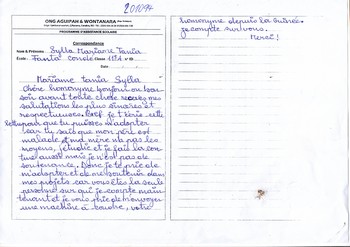 201094
ONG AGUIPAH & WONTANARA
PROGRAMME D'ASSISTANCE SCOLAIRE
Correspondance
Nom & Prénoms: Sylla Mariame Tania
École: Fanta condé Classe
Mariame tania Sylla
Chère homonyme bonjour ou bon
soir avant toute chose recevez mes
salutations les plus sincères et
respectueuses. Bref je t'écris cette
lettre pour que tu puisses m'adopter
car tu sais que mon père est
malade et ma mère n'a pas les
moyens, j'étudie et je fais la cou
ture aussi mais je n'ai pas de
soutenance. Donc je te prie de
m'adopter et de me soutenir dans
mes projets car vous êtes la seule
personne sur qui je compte main
tenant et je vous prie de m'envoyer
une machine à coudre, votre
homonyme depuis la Guinée.
je compte sur vous.
Merci!